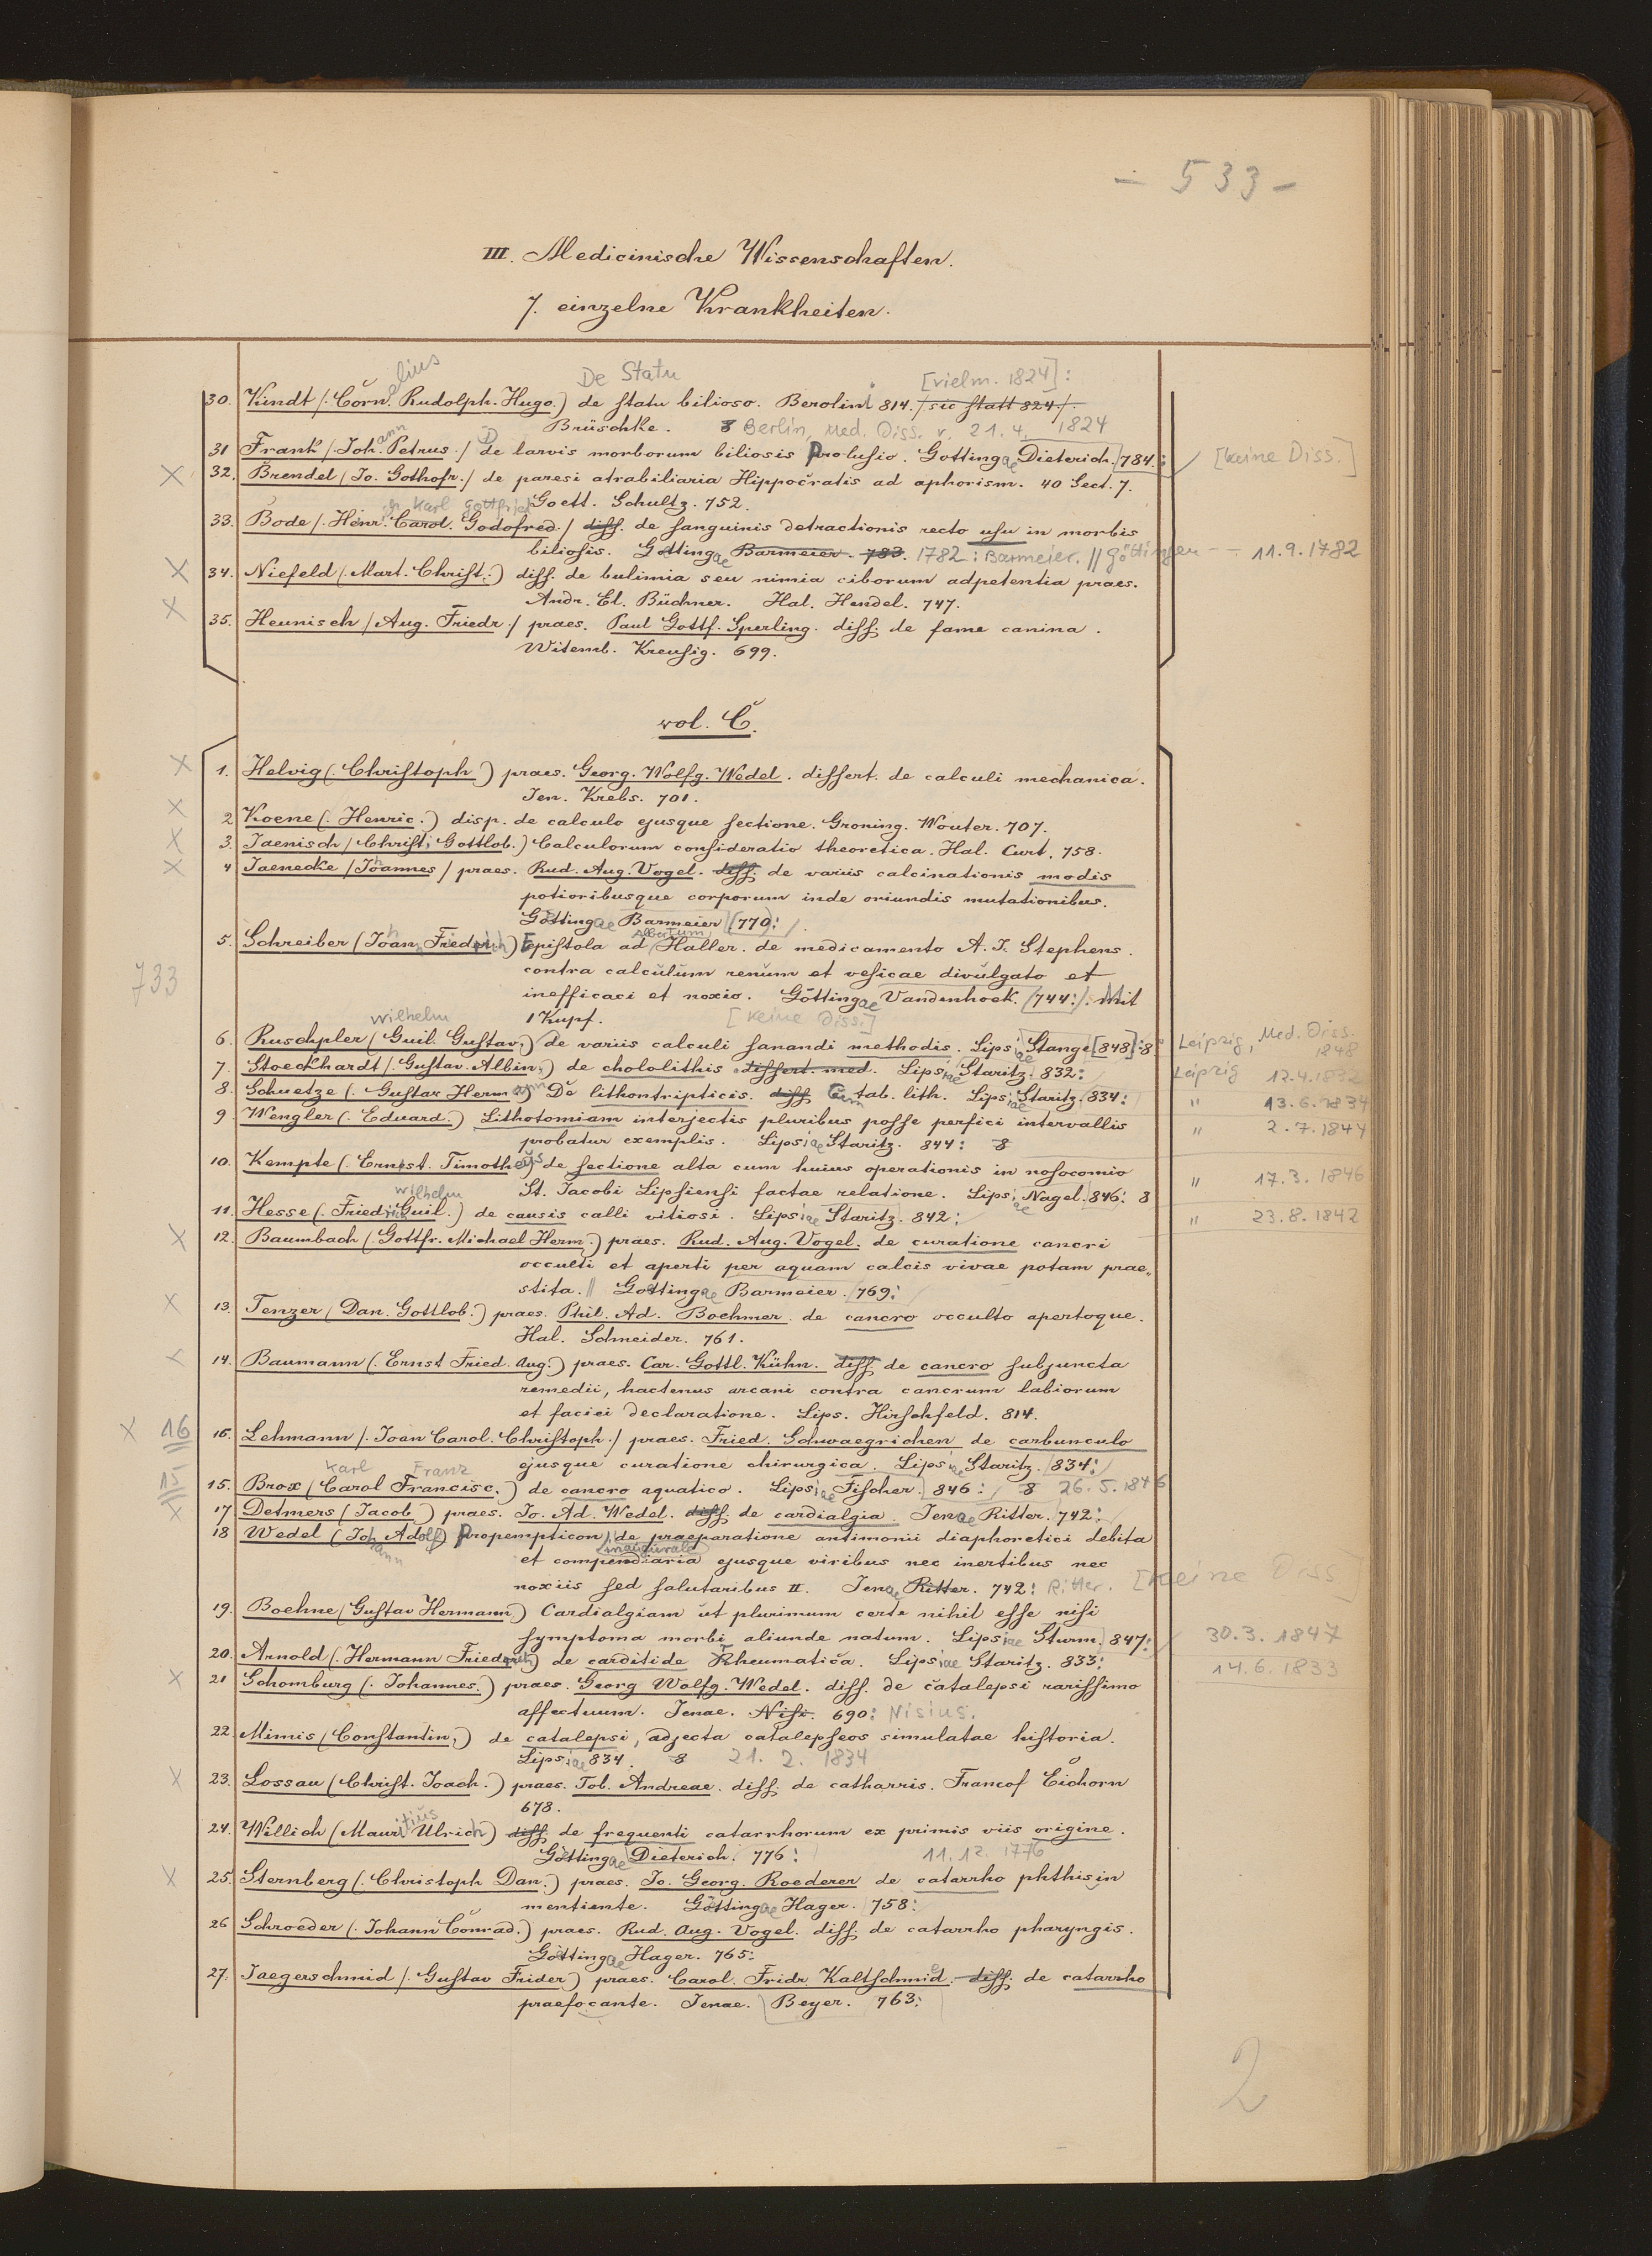 - 533 -
III. Medicinische Wissenschaften.
7. einzelne Krankheiten.
De Statu [vielm. 1824]:
30. Kindt /: Corn.elius Rudolph. Hugo.) de statu bilioso. Berolini 814. /sic statt 824/.
Brüschke. 8 Berlin, Med. Diss. v. 21. 4. 1824
31 Frank /: Johann Petrus ./ De larvis morborum biliosis Prolusio. Gottingae Dieterich. 784.: [keine Diss.]
X 32. Brendel / Jo. Gothofr./ de paresi atrabiliaria Hippocratis ad aphorism. 40 Sect. 7.
Goett. Schultz. 752.
Karl Gottfried
33. Bode /. Henr. Carol. Godofred./ diss. de sanguinis detractionis recto usu in morbis
biliosis. Göttingae Barmeier. 783. 1782: Barmeier. // Göttingen - : 11.9.1782
X 34. Niefeld (. Mart. Christ.:) diss. de bulimia seu nimia ciborum adpetentia praes.
Andr. El. Büchner. Hal. Hendel. 747.
X 35. Heunisch / Aug. Friedr./ praes. Paul Gottf. Sperling. diss. de fame canina.
Witemb. Kreusig. 699.
vol. C.
X 1. Helvig (. Christoph.) praes. Georg. Wolfg. Wedel. dissert. de calculi mechanica.
Jen. Krebs. 701.
X 2 Koene (. Henric.) disp. de calculo ejusque sectione. Groning. Wouter. 707.
X 3. Jaenisch / Christ. Gottlob.) Calculorum consideratio theoretica. Hal. Curt. 758.
X 4 Jaenecke / Johannes / praes. Rud. Aug. Vogel. diss. de variis calcinationis modis
potioribusque corporum inde oriundis mutationibus.
Göttingae Barmeier (770:/.
5. Schreiber (Johan. Friedrich) Epistola ad Albertum Haller. de medicamento A. J. Stephens.
733 contra calculum renum et vesicae divulgato et
inefficaci et noxio. Göttingae Vandenhoek. (744:/. Mit
1 Kupf. [keine Diss.]
Wilhelm
6. Ruschpler (Guil. Gustav.) de variis calculi sanandi methodis. Lipsiae Stange [848]:8° Leipzig, Med. Diss. 1848
7. Stoeckhardt /. Gustav. Albin.) de chololithis dissert. med. Lipsiae Staritz. 832: Leipzig 12.4.1832
8. Schuetze (. Gustav Hermann) De lithontripticis. diss. Cum tab. lith. Lipsiae Staritz. 834: " 13.6.1834
9. Wengler (. Eduard.) Lithotomiam interjectis pluribus posse perfici intervallis
probatur exemplis. Lipsiae Staritz. 844: 8 " 2.7.1844
10. Kempte (. Ernest. Timotheus) de sectione alta cum huius operationis in nosocomio
St. Jacobi Lipsiensi factae relatione. Lipsiae Nagel. 846: 8 " 17.3.1846
Wilhelm
11. Hesse (. Friedrich Guil.) de causis calli vitiosi. Lipsiae Staritz. 842: " 23.8.1842
X 12. Baumbach (. Gottfr. Michael Herm.) praes. Rud. Aug. Vogel. de curatione cancri
occulti et aperti per aquam calcis vivae potam prae„
stita. // Gottingae Barmeier. (769:
X 13. Tenzer / Dan. Gottlob.) praes. Phil. Ad. Boehmer. de cancro occulto apertoque.
Hal. Schneider. 761.
X 14. Baumann (. Ernst Fried. Aug.) praes. Car. Gottl. Kühn. diss. de cancro subjuncta
remedii, hactenus arcani contra cancrum labiorum
et faciei declaratione. Lips. Hirschfeld. 814.
X 16 16. Lehmann /. Joan Carol. Christoph./ praes. Fried. Schwaegrichen de carbunculo
ejusque curatione chirurgica. Lipsiae Staritz. (834:
Karl Franz
15 15. Brox / Carol Francisc.) de cancro aquatico. Lipsiae Fischer. 846:/ 8 26.5.1846
X 17 Detmers (Jacob) praes. Jo. Ad. Wedel. diss. de cardialgia. Jenae Ritter. 742:
18 Wedel (Johann Adolf) Propempticon inaugurale de praeparatione antimonii diaphoretici debita
et compendiaria ejusque viribus nec inertibus nec
noxiis sed salutaribus II. Jenae Ritter. 742: Ritter. [keine Diss]
19. Boehne (Gustav Hermann) Cardialgiam ut plurimum certe nihil esse nisi
symptoma morbi aliunde natum. Lipsiae Sturm. 847: 30.3.1847
20. Arnold (. Hermann Friedrich) de carditide Rheumatica. Lipsiae Staritz. 833: 14.6.1833
X 21 Schomburg (. Johannes.) praes. Georg Wolfg. Wedel. diss. de catalepsi rarissimo
affectuum. Jenae. Nisi. 690: Nisius.
22. Mimis (Constantin.) de catalepsi, adjecta catalepseos simulatae historia.
Lipsiae 834. 8 21. 2. 1834
X 23. Lossau (Christ. Joach.) praes. Tob. Andreae. diss. de catharris. Francof Eichorn
678.
24. Willich (Mauritius Ulrich) diss. de frequenti catarrhorum ex primis viis origine.
Göttingae Dieterich. 776: 11.12.1776
X 25. Sternberg (. Christoph Dan.) praes. Jo. Georg. Roederer de catarrho phthisin
mentiente. Göttingae Hager. 758:
26 Schroeder (. Johann Conrad.) praes. Rud. Aug. Vogel. diss. de catarrho pharyngis.
Göttingae Hager. 765:
27. Jaegerschmid /. Gustav Frider) praes. Carol. Fridr. Kaltschmid. diss. de catarrho
praefocante. Jenae. Beyer. 763:
2